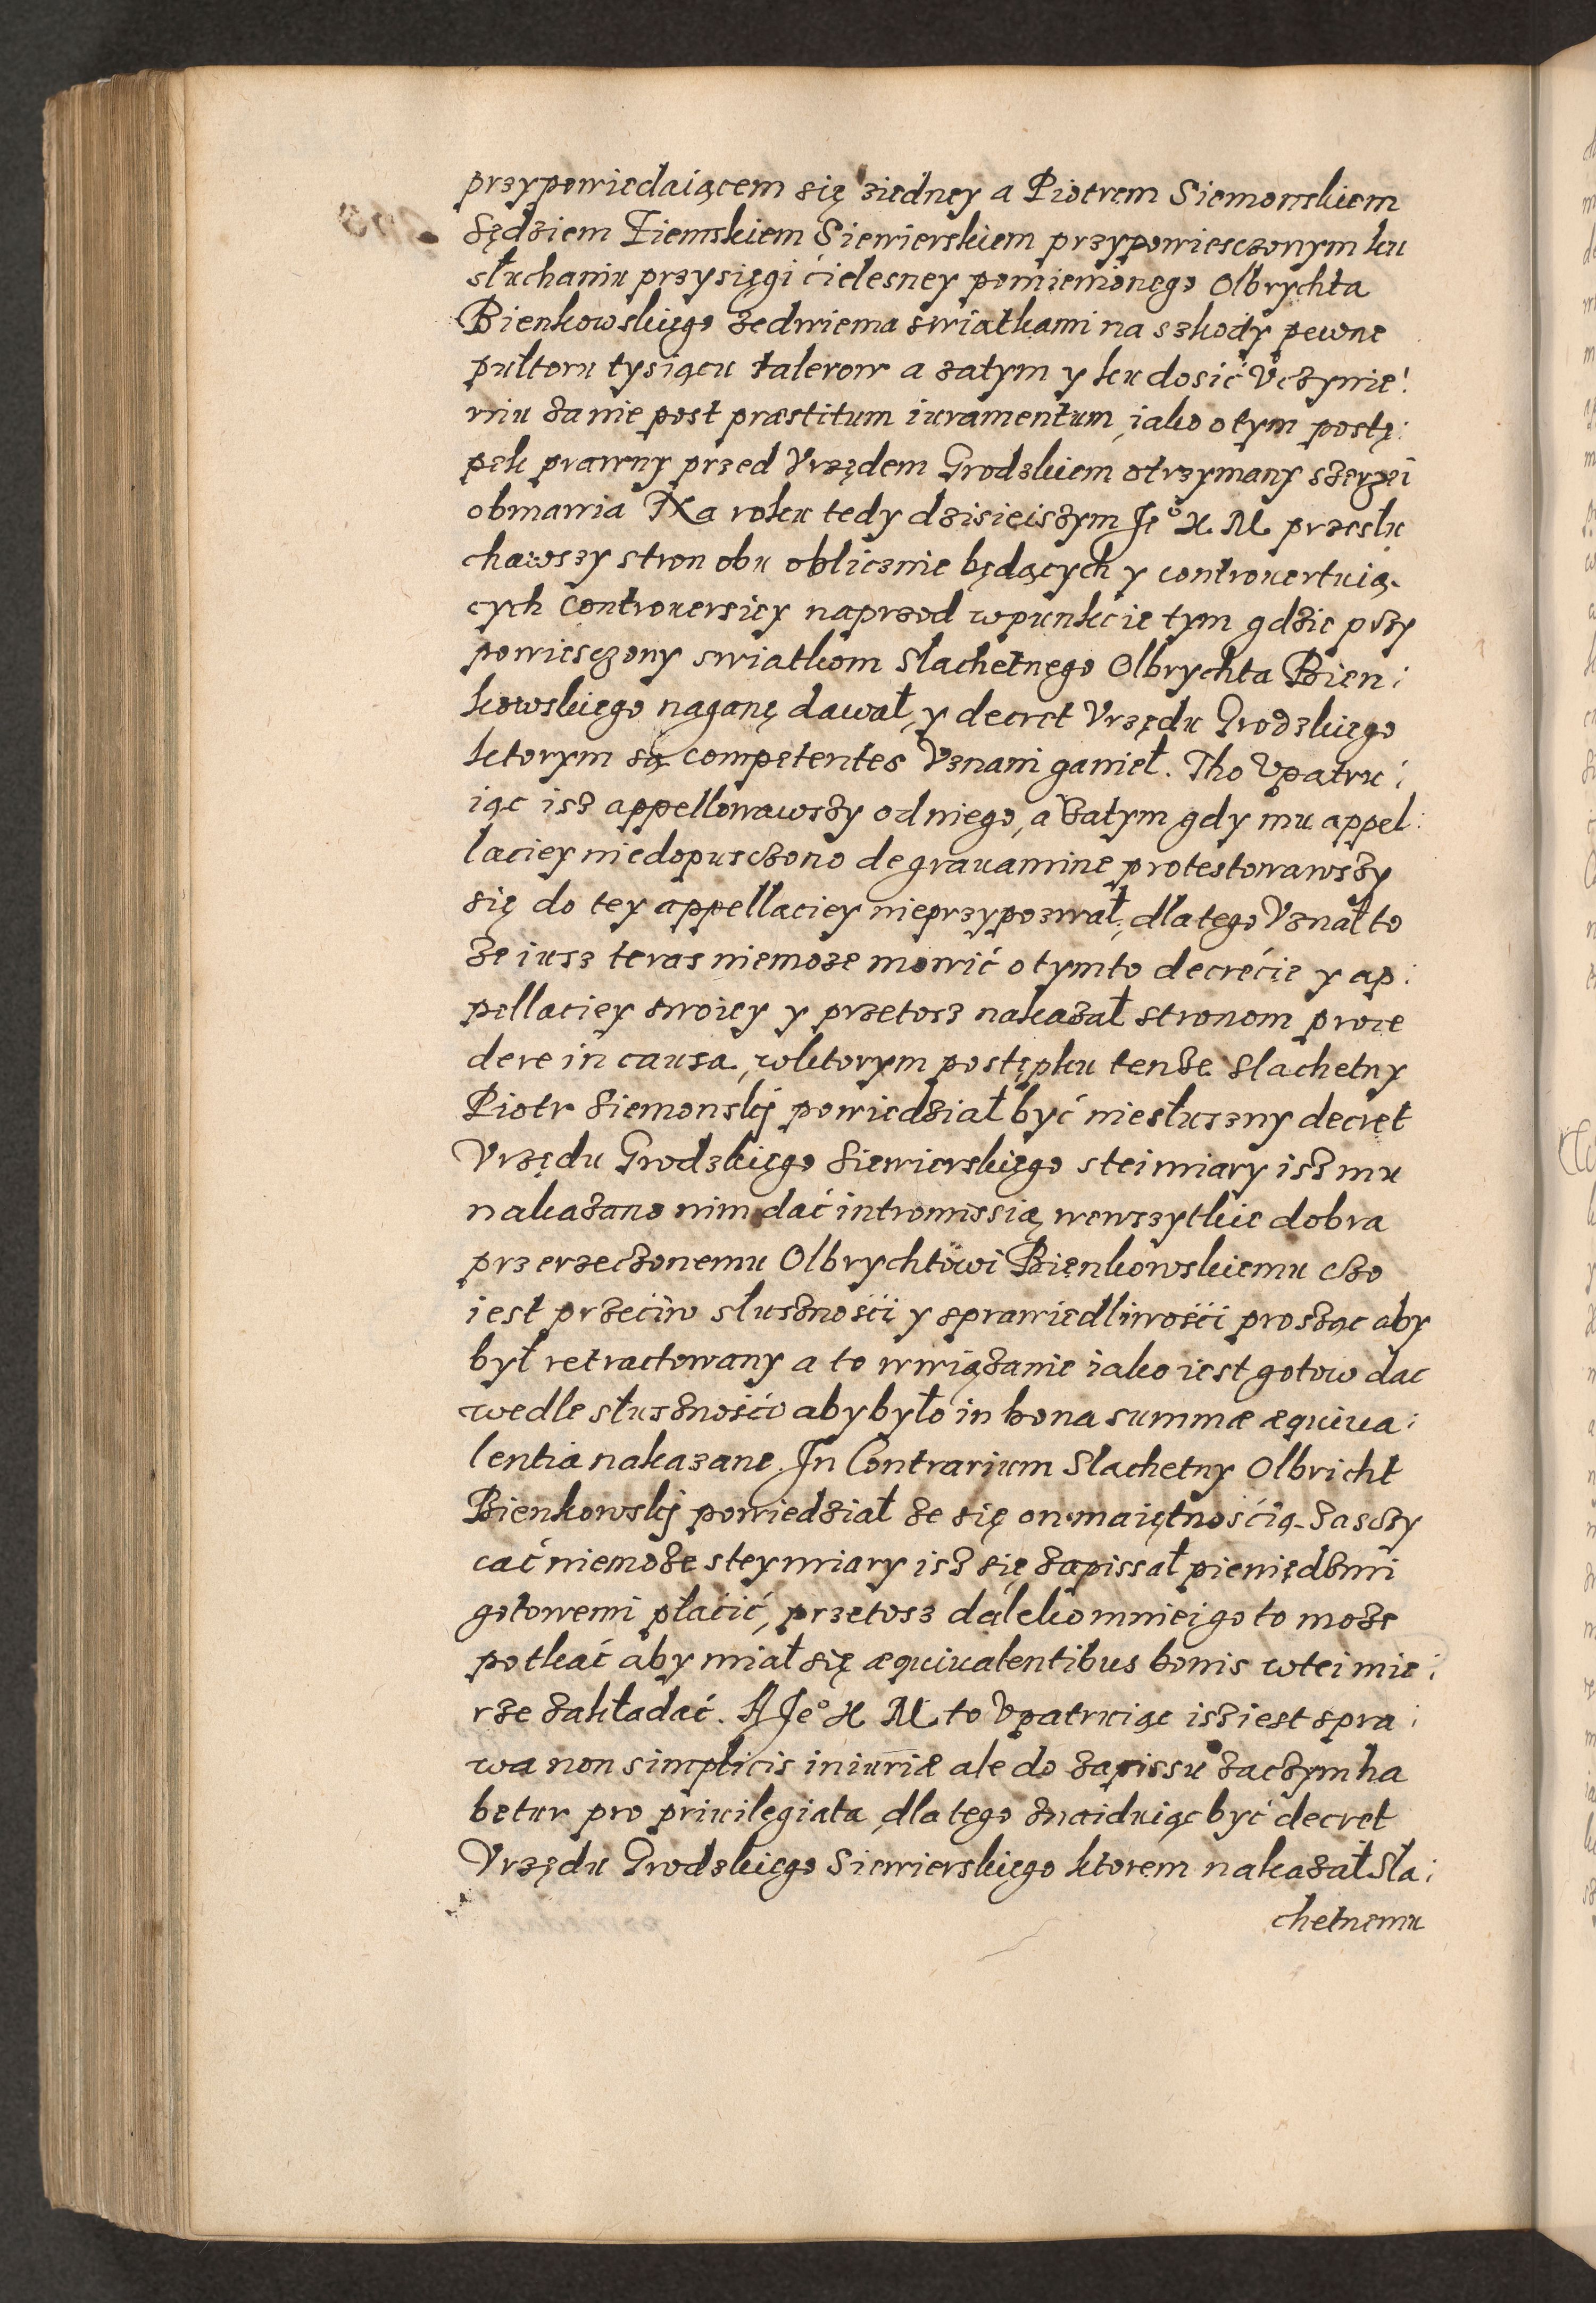 przypowiedaiącem się ziedney a Piotrem Siemonskiem
Sędziem Ziemskiem Siewierskiem przypowiesczonym ku
słuchaniu przysięgi ćielesney pomienionego Olbrychta
Bienkowskiego zedwiema swiatkami na szkody pewne
pułtoru tysiącu talerow a zatym y ku dosić Vczynie:
niu zanie post præstitum iuramentum, iako o tym postę:
pek prawny przed Vrzędem Grodzkiem otrzymany szerzei
obmawia Na roku tedy dzisieiszym Je° X. M. przesłu
chawszy stron obu oblicznie będących y controuertuią.
cych Controuersiey naprzod w punkcie tym gdzie przy
powiesczony swiatkom Slachetnego Olbrychta Bien:
kowskiego naganę dawał, y decret Vrzędu Grodzkiego
ktorym są competentes Vznani ganieł. Tho Vpatru:
iąc isz appellowawszy od niego, a zatym gdy mu appel:
laciey niedopusczono de grauamine protestowawszy
się do tey appellaciey nieprzypozwał, dlatego Vznał to
że iusz teras niemoże mowić o tymto decrećie y ap:
pellaciey swoiey y przetosz nakazał stronom proce
dere in causa, wktorym postępku tenże Slachetny
Piotr Siemonskj powiedział być niesłuszny decret
Vrzędu Grodzkiego Siewierskiego stei miary isz mu
nakazano nim dać intromissią wewszytkie dobra
przerzeczonemu Olbrychtowi Bienkowskiemu czo
iest przećiw słusznośći y sprawiedliwośći prosząc aby
był retractowany a to wwiązanie iako iest gotow dac
wedle słusznośći aby było in bona summæ æquiua:
lentia nakazane. In Contrarium Slachetny Olbricht
Bienkowskj powiedział że się on maiętnośćią zasczy
cać niemoże stey miary isz się zapissał pieniędzmi
gotowemi płaćić, przetosz daleko mniei go to może
potkać aby miał się æquiualentibus bonis wtei mie:
rze zakładać. A Je° X M. to Vpatruiąc isz iest spra:
wa non simplicis iniuriæ ale do zapissu zaczym ha
betur pro priuilegiata, dlatego znaiduiąc być decret
Vrzędu Grodzkiego Siewierskiego ktorem nakazał Sla:
chetnemu